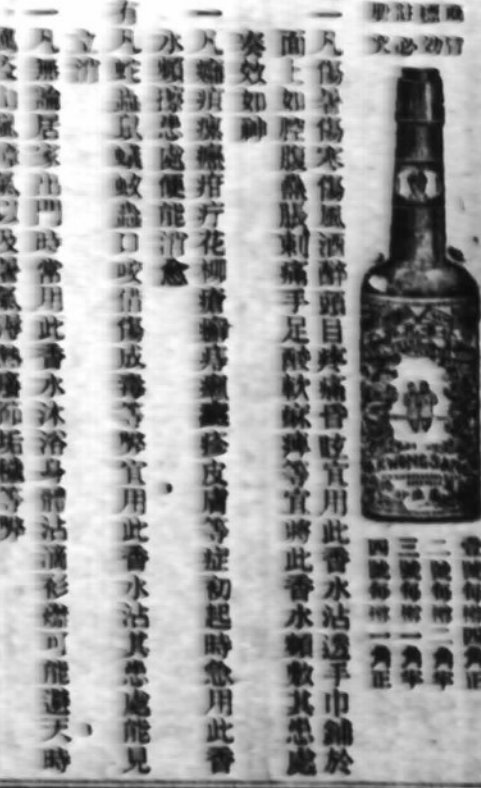 商標註冊
冒効必究
KWONG SANG
壹號每樽四角正
二號每樽二角半
三號每樽一角半
四號每樽一角正
一凡傷暑傷寒傷風酒醉頭目疼痛昏眩宜用此香水沾透手巾鋪於
面上如腔腹熱腸刺痛手足酸軟麻痺等宜將此香水頻敷其患處
奏效如神
一凡癰疽瘰癧疳疔花柳瘡癬痔疹皮膚等症初起時急用此香
水頻擦患處便能消愈
有凡蛇蟲鼠蟻蚊蟲口咬傷成毒等弊宜用此香水沾其患處能見
立消
一凡無論居家出門時常用此香水沐浴身體沾滴衫襟可能避天時
山嵐瘴氣以及暑氣熱垢穢等弊